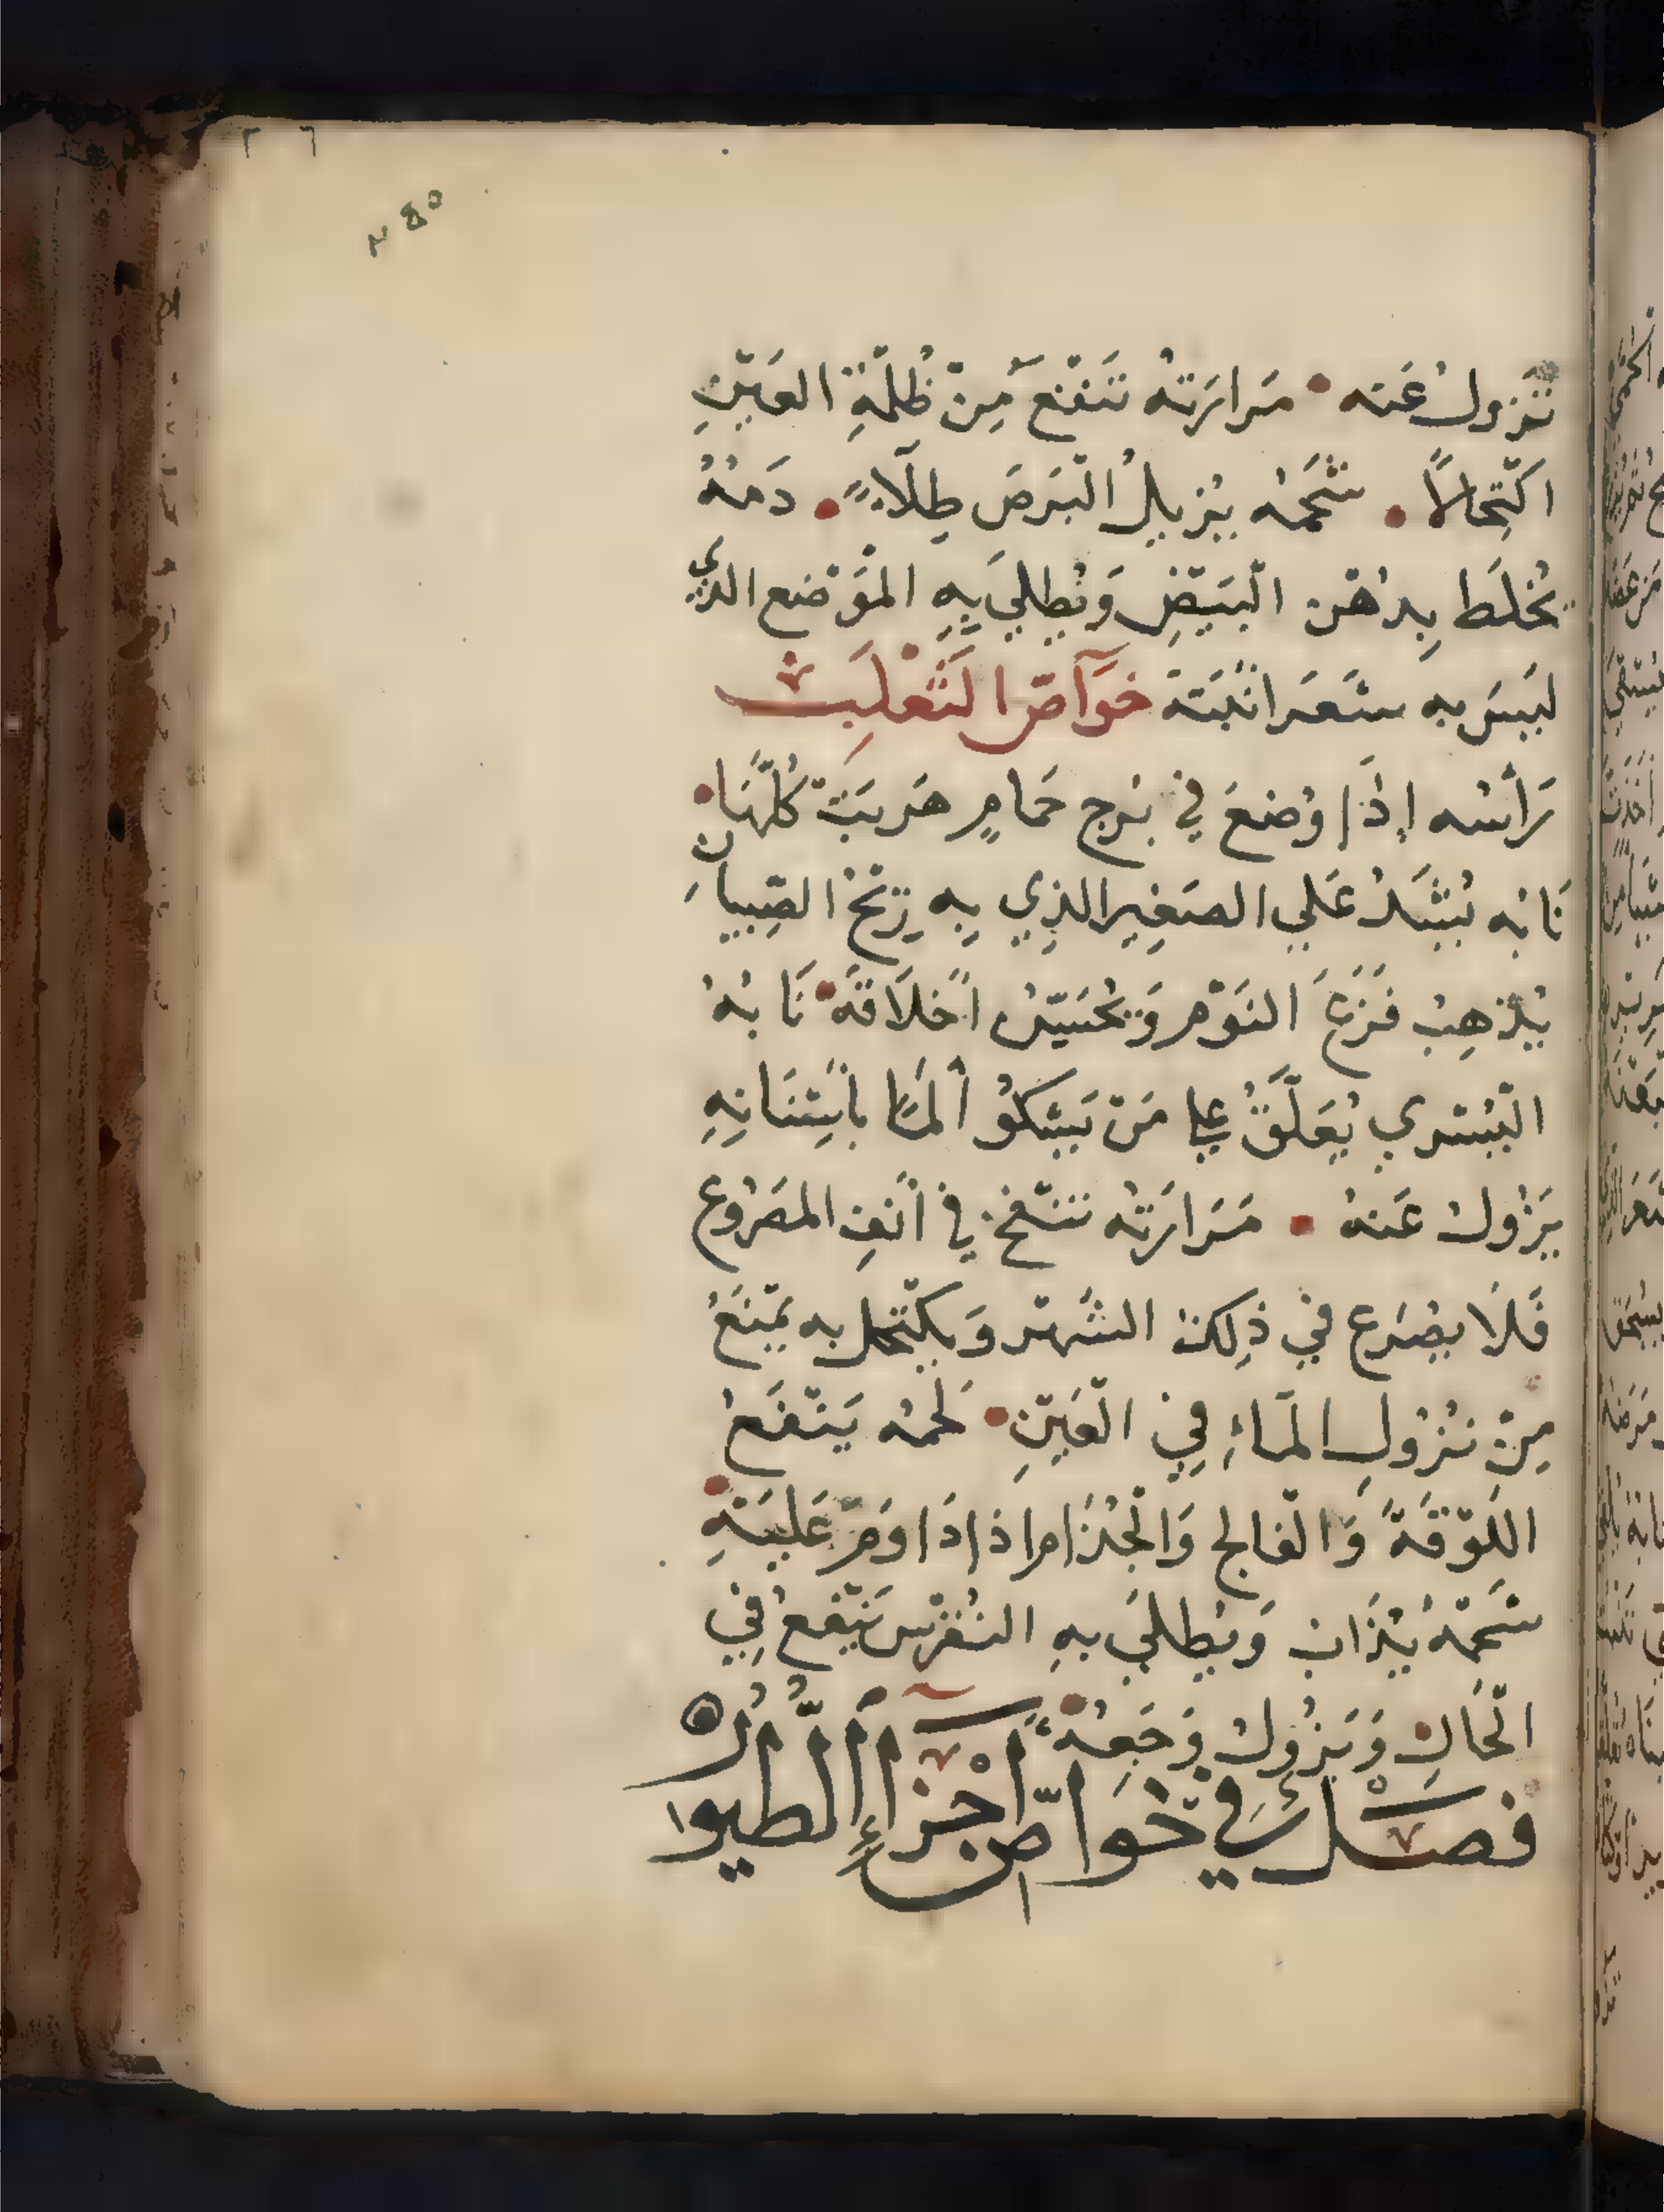 تَزول عَنه • مَرارَتهُ تَنفَع مِنْ ظُلمَةِ العَيْنِ
اكتِحالاً • شَحمُه يُزيلُ البَرَصَ طِلاءً • دَمُهُ
يُخلَط بِدُهْن البَيْضِ وَيُطلي بِهِ المَوْضع الذي
لَيسَ به شَعَر انبَتَهُ خوَاصّ الثَعْلَب
رَأسُه إذَا وُضعَ في بُرج حَمامٍ هَرَبَتْ كُلّهَا •
نَابُه يُشَدُ عَلي الصَغِير الذِي بِه رِيْحُ الصِبيان
يُذهِبُ فَزَعَ النَوْم وَيُحَسِّنُ أخلَاقَهُ • نَابُهُ
اليُسْري يُعَلَّقُ علي مَنْ يَشكوُ ألماً بأسْنَانِهِ
يَزُول عَنهُ • مَرَارَتُه تنفخ في أنفِ المصَرُوع
فَلَا يصُرَع في ذلِكَ الشَهر وَيكتحل به يَمنَعُ
مِنْ نُزُولِ المَاءِ فِي العَيْنِ • لَحمُه يَنْفَعُ
اللَوْقَةَ وَالفالج وَالجُذَام اذا دَاوَمَ عَليَهِ •
شَحمُهُ يُذَاب وَيُطلَي بهِ النقرس يَنفعُ فِي
الحَالِ • وَيَزُول وَجَعِهُ •
فصل في خوَاصّ أجْزاءِ الطيور